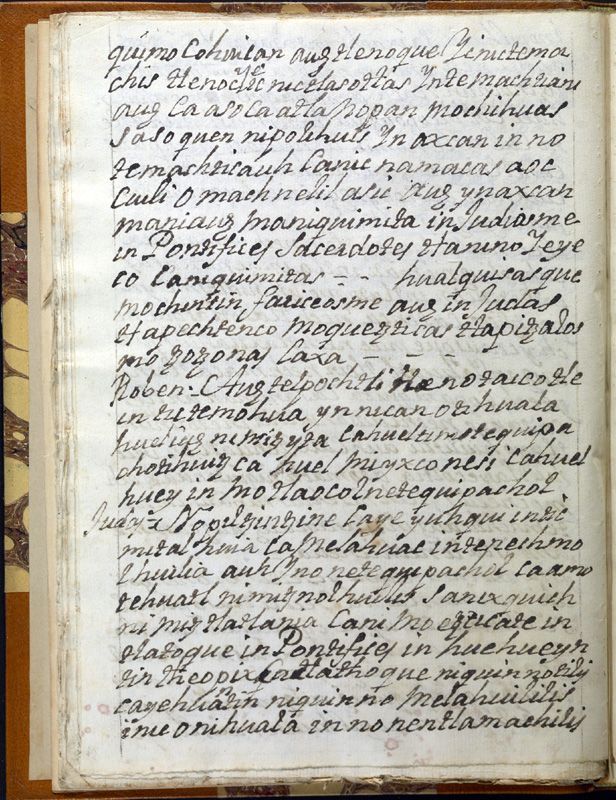 quimo Cohuican auz tlenoque Yenictema
chis tlenoctec nicelasotlas Yntemachtiani
auz Ca aso ca atla Nopan mochihuas
saso quen nipolihuis Yn axcan in no
temachticauh Canic namacas aoc
Cuili O machnelil asic Auz ynaxcan
maniauz maniquimita in Judiosme
in Pontifices Sacerdotes tlanino Yeye
co Caniquimitas - - hualquisasque
mochintin fariceosme auz in Judas
tlapechtenco moquezticas tlapitzalos
mo zozonas Caxa - - - -
Roben - Auz telpochtli no taicotle
in tictemohua ynnican otihuala
hueliuz nimizyta Cahueltimotequipa
chotihuiz ca huel miyxconesi Cahuel
huey in motlaocolnetequipachol
Judas Nopiltzintzine Caye yuhqui intic
mitalhuia Ca Melahuac intepechmo
lhuilia auh Yno netequipachol Caamo
tehuatl nimiznolhuilis Sanixquich
nimiztlatlania Canimoezticate in
tlatoque in Pontifices in huehueyn
tin theopixcatlathoque niquinnotily
cayehuatin niquinno Melahuililis
inic onihuala in nonentlamachilis